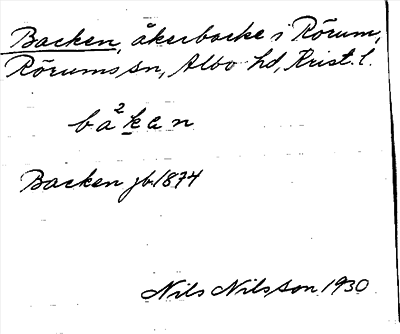 Backen, åkerbacke i Rörum,
Rörums sn, Albo hd, Krist. l.
ba²kan
Backen jb 1874
Nils Nilsson 1930